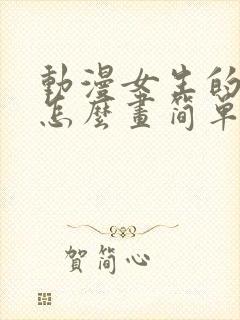 動漫女生的
怎麼畫簡單
賀簡心